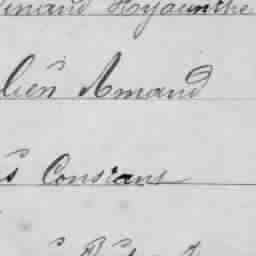 inand Hyacinthe
lien Amand
s Consians